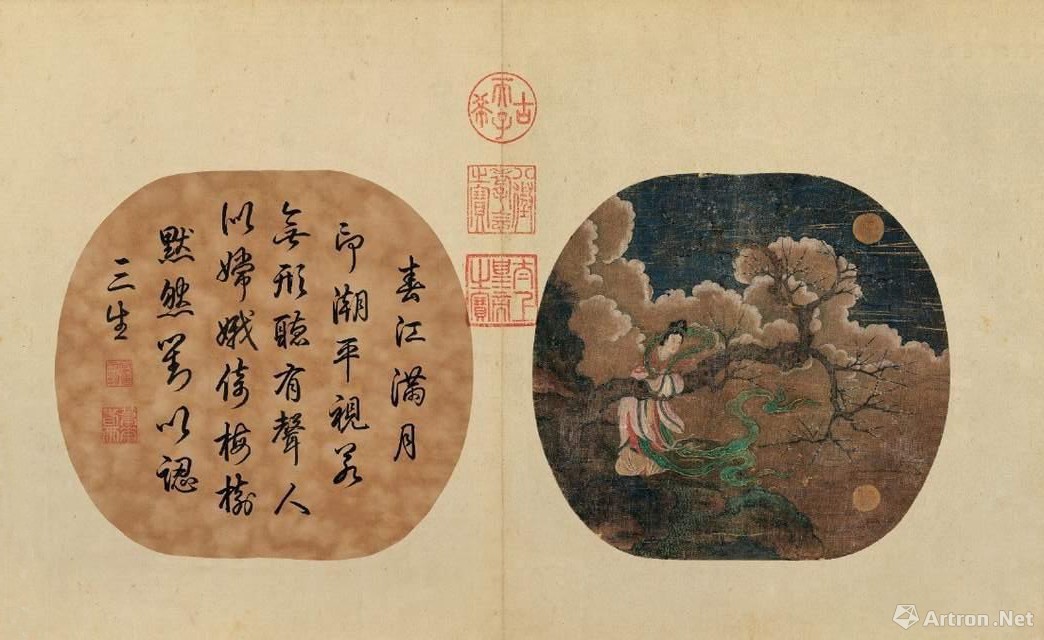 春江滿月
印潮平視若
無形聽有聲人
似嫦娥倚梅樹
默然對以認
三生
古希天子
八徵耄念之寶
太上皇帝之寶
Artron.Net